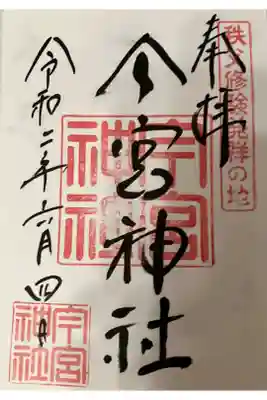 秩父修験発祥の地
奉拝
今宮神社
今宮
神社
令和二年六月四日
今宮
神社